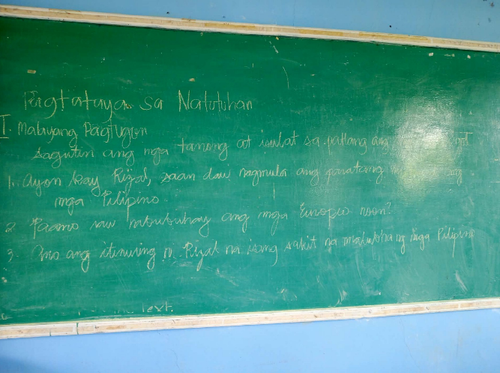 Pagtataya sa Natutuhan
I. Malayang Pagtugon
Sagutin ang mga tanong at isulat sa patlang ang
1. Ayon kay Rizal, saan daw nagmula ang ang
mga Pilipino.
2. Paano raw nabubuhay ang mga Europeo noon?
3. Ano ang itinuring ni Rizal na isang sakit na ng mga Pilipino
text.